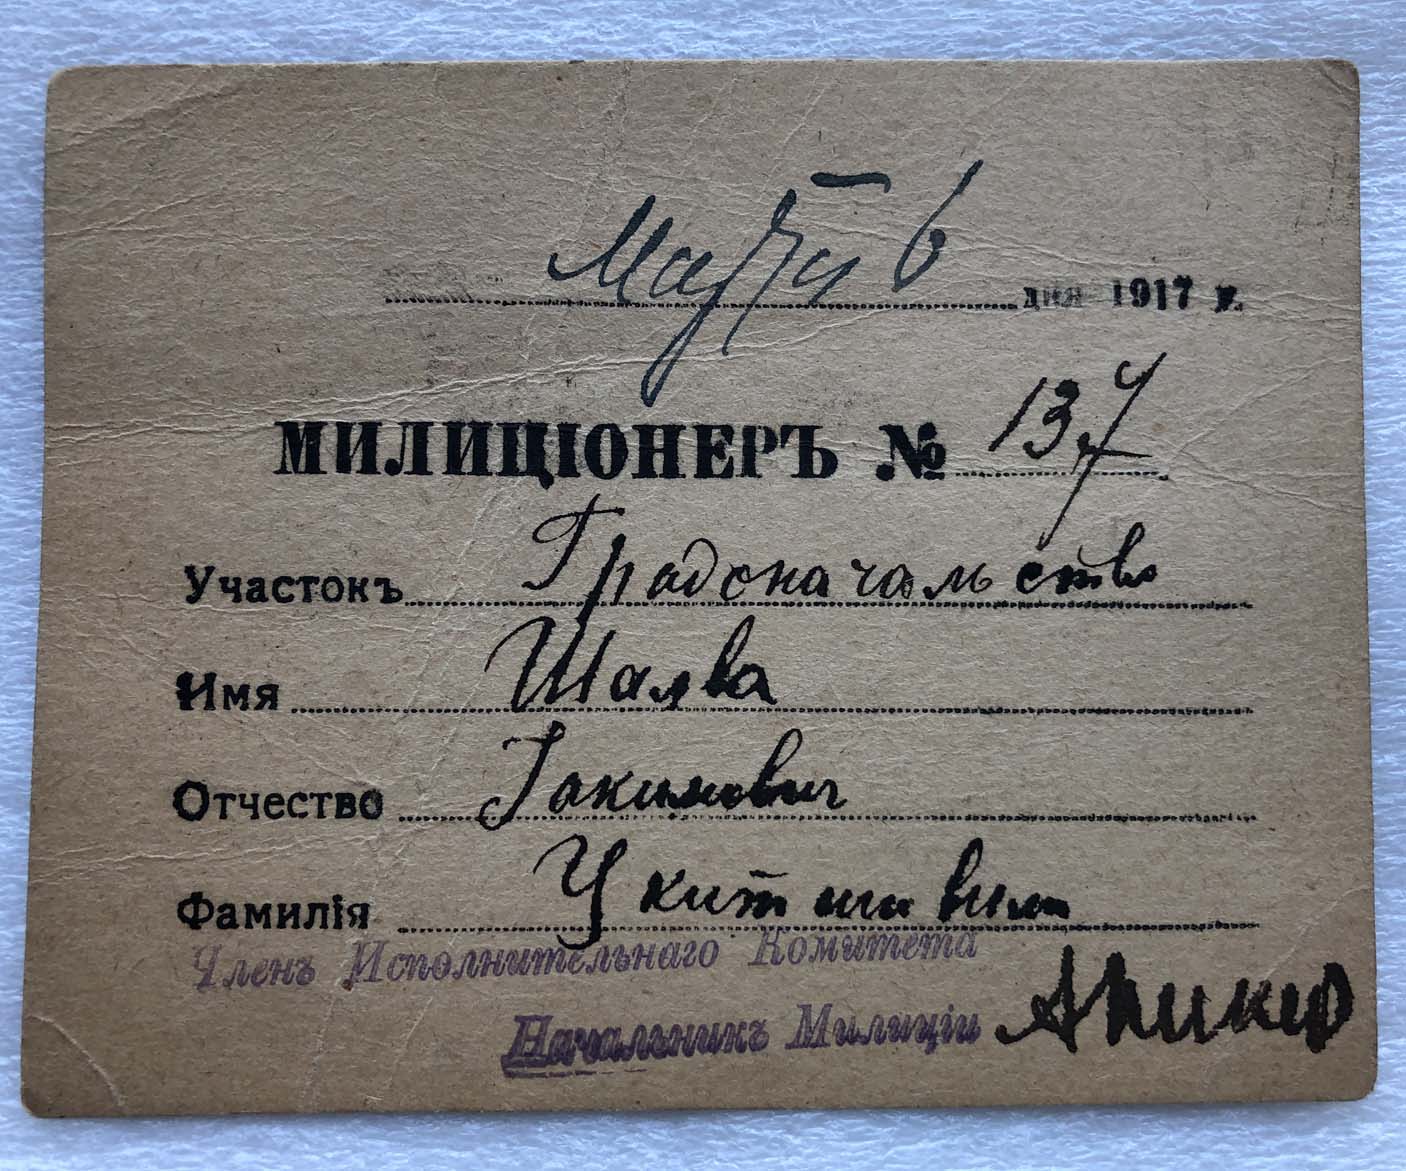 Марта 6 дня 1917 г.
МИЛИЦІОНЕРЪ № 137
Участокъ Градоначальство
Имя Шалва
Отчество Іакимович
Фамилія
Членъ Исполнительнаго Комитета
Начальникъ Милиціи